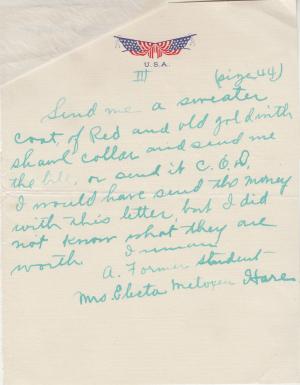 U.S.A.
III (size 44)
Send me a sweater
coat, of Red and old gold with
shawl collar and send me
the bill, or send it C.O.D.
I would have send the money
with this letter, but I did
not know what they are
worth. I remain
A. Former student
Mrs. Electa Metoxen Hare